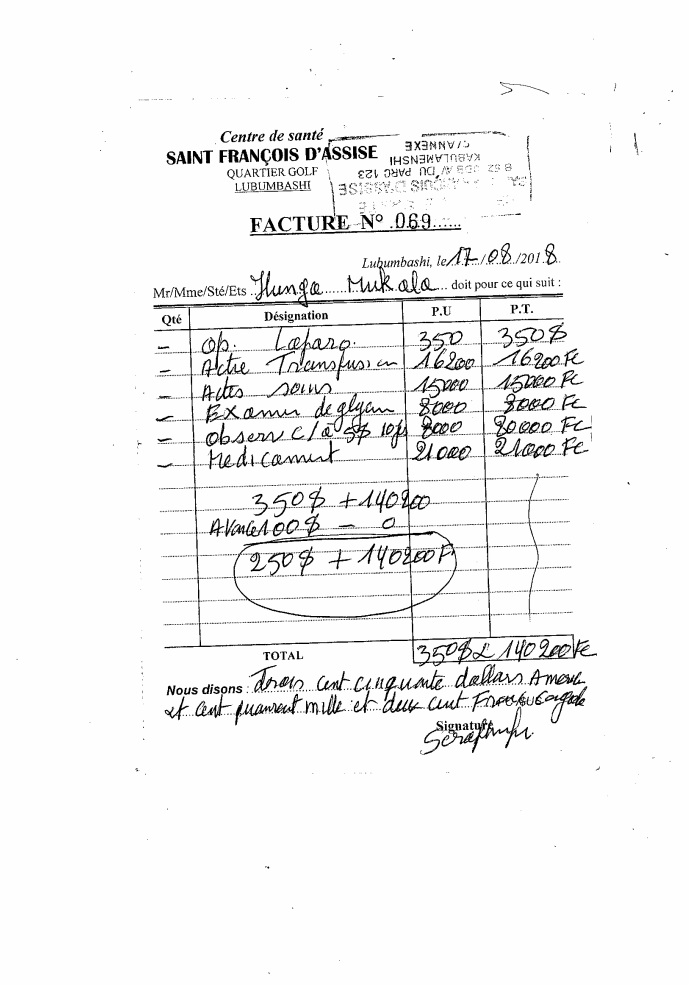 Centre de santé
SAINT FRANÇOIS D'ASSISE
QUARTIER GOLF
LUBUMBASHI
C/ANNEXE
KABULAMENSHI
B 52 GDB AV DU PARC 123
FRANÇOIS D'ASSISE
FACTURE N° 069
Lubumbashi, le 17/08/2018
Mr/Mme/Sté/Ets Ilunga Mukala doit pour ce qui suit :
Qté Désignation P.U P.T.
- Op. Laparo. 350 350$
- Actre Transfusion 16200 16200 Fc
- Actes soins 15000 15000 Fc
- Examen de glycm 8000 8000 Fc
- Observ C/à 5$ 10js 8000 80000 Fc
- Medicament 21000 21000 Fc
350$ + 140200
Avance 100$ - 0
250$ + 140200 F
TOTAL 350$ & 140200 Fc
Nous disons : Trois cent cinquante dollars Americ
et cent quarent mille et deux cent
Signature